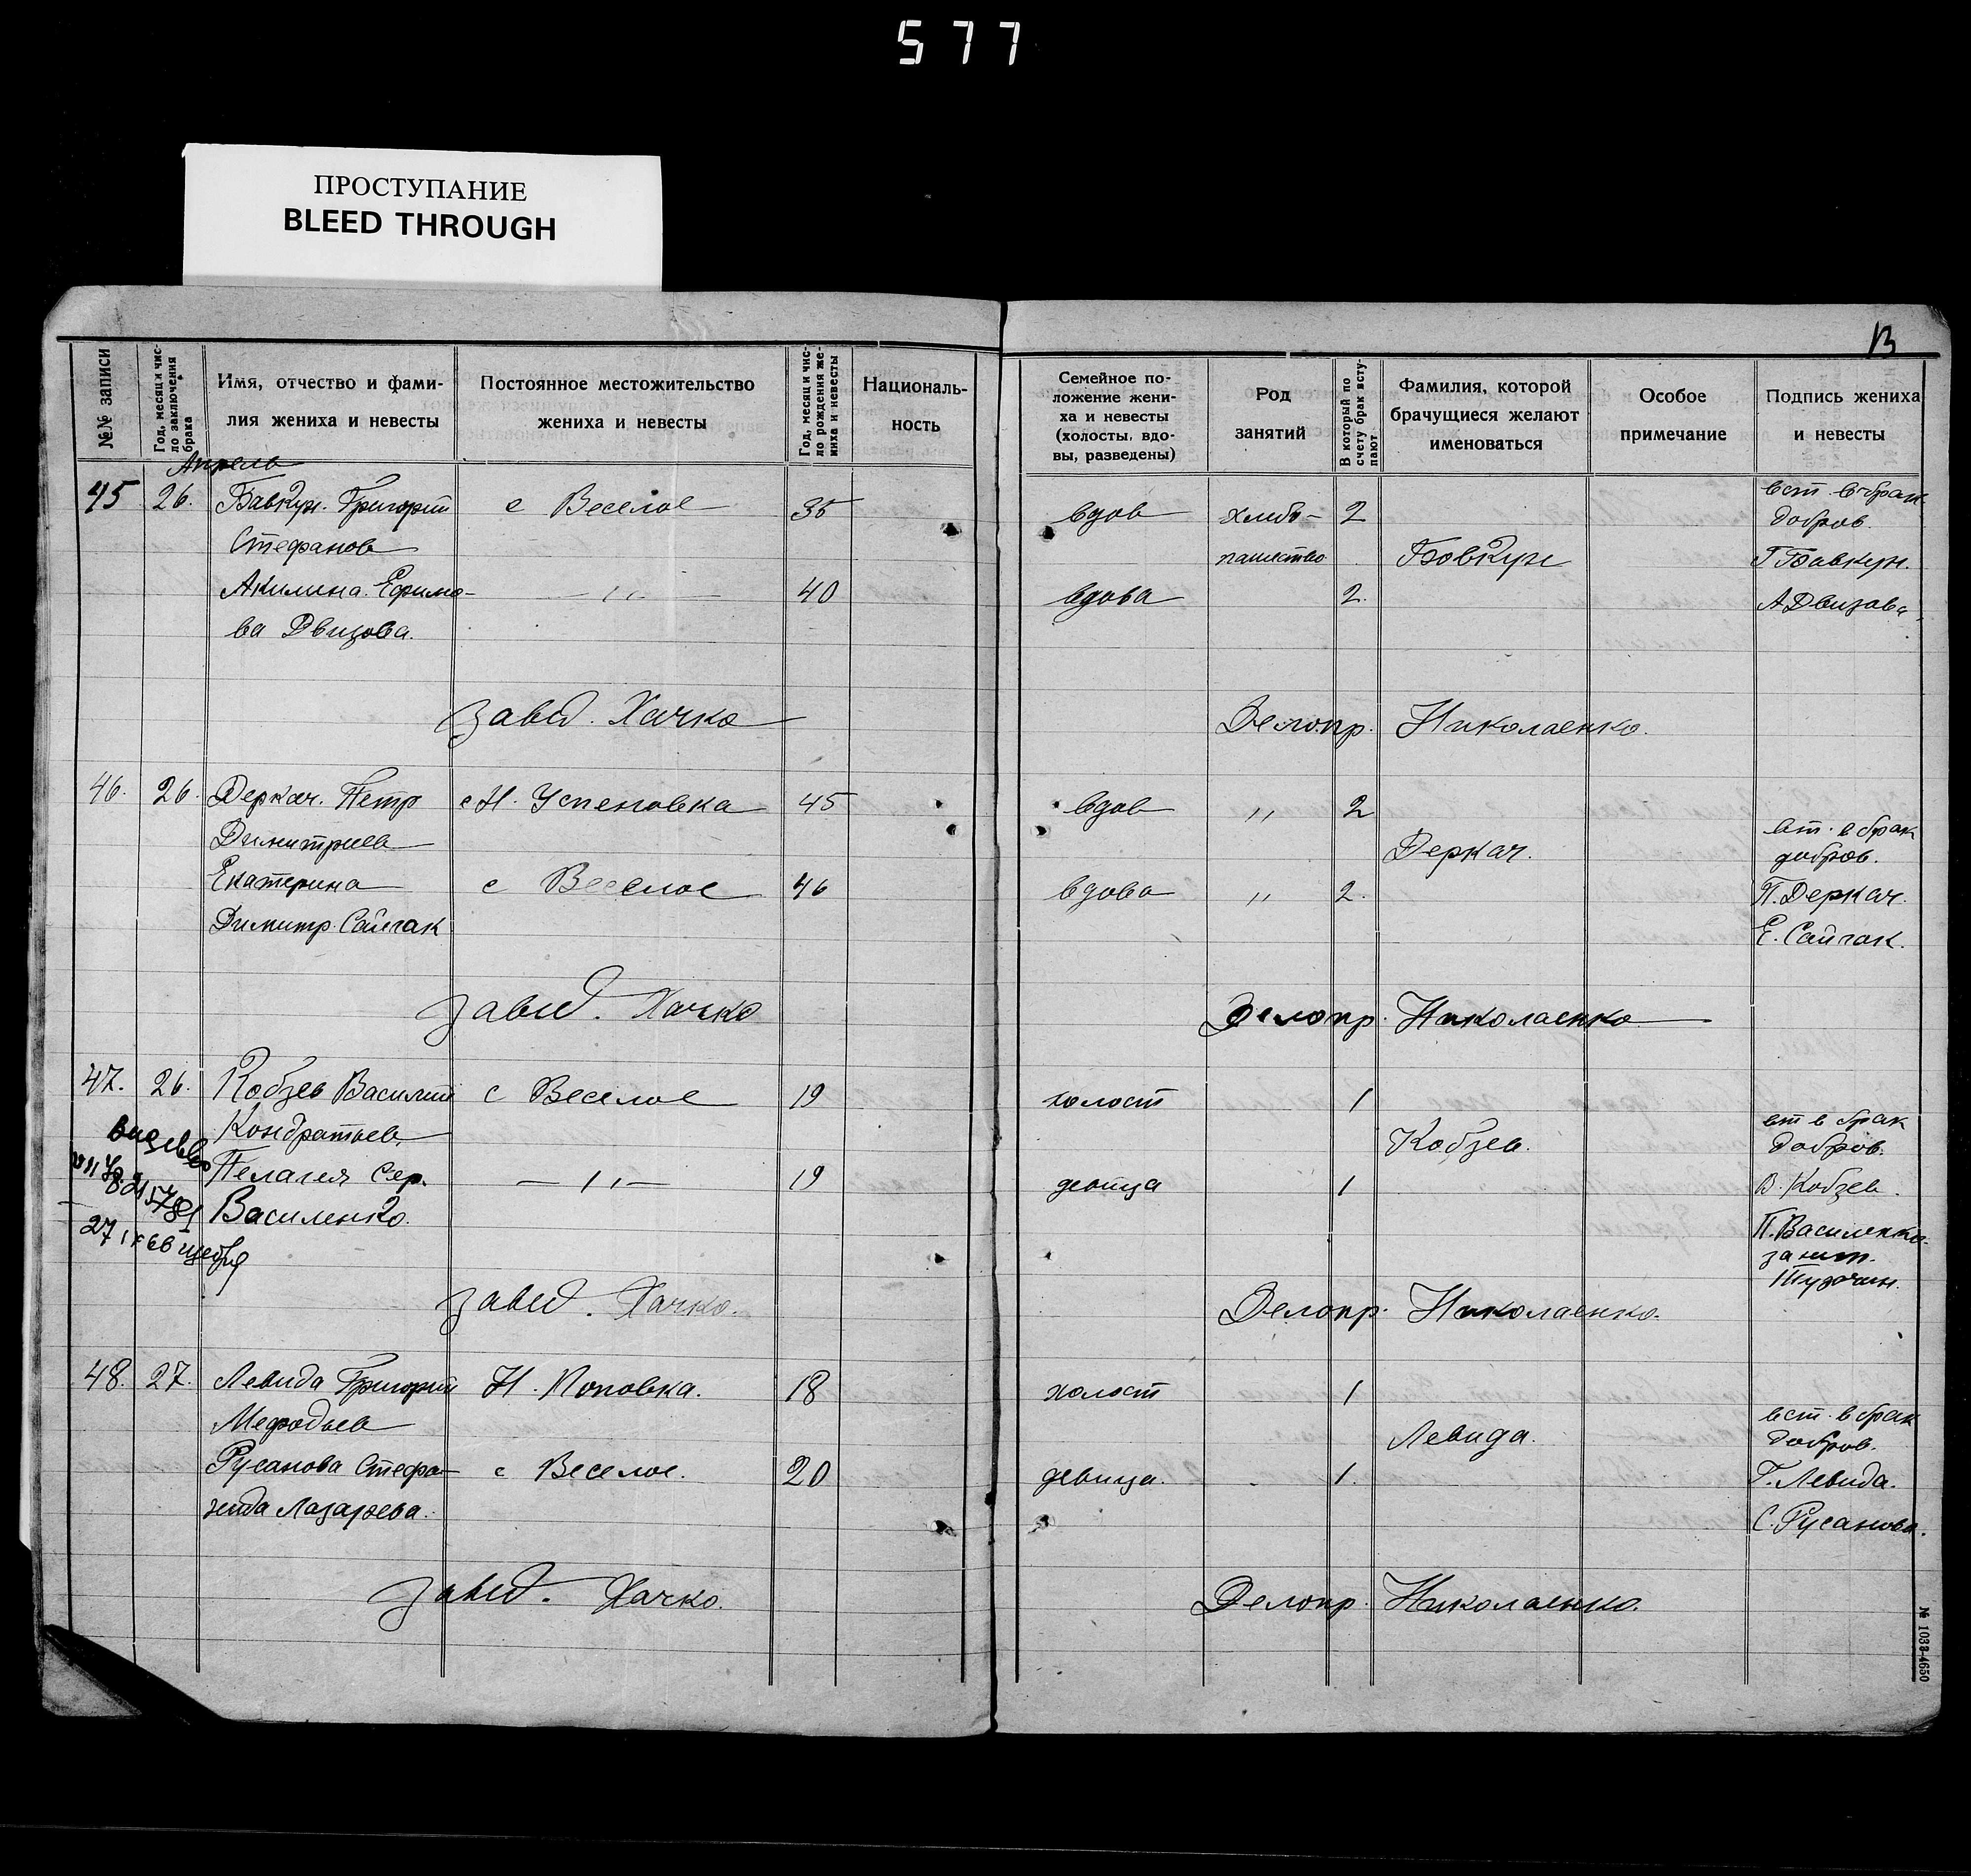 577
ПРОСТУПАНИЕ
BLEED THROUGH
13
№№ записи
Год, месяц и чис-
ло заключения
брака
Имя, отчество и фами-
лия жениха и невесты
Постоянное местожительство
жениха и невесты
Год, месяц и чис-
ло рождения же-
ниха и невесты
Националь-
ность
Семейное по-
ложение жени-
ха и невесты
(холосты, вдо-
вы, разведены)
Род
занятий
В который по
счету брак всту-
пают
Фамилия, которой
брачущиеся желают
именоваться
Особое
примечание
Подпись жениха
и невесты
Апрель
45 26. Бавкун. Григорий с Веселое 35 вдов хлебо- 2 вст. в брак
Стефанов добров.
пашество Бовкун Г Бавкун.
Акилина Ефимо- — 〃 — 40 вдова 2. А Двизова
ва Двизова.
Завед. Хачко Делопр. Николаенко.
46. 26 Деркач. Петр с Н. Успеновка 45 вдов 〃 2
Димитриев Деркач. вт. в брак
добров.
Екатерина с Веселое 46 вдова 〃 2. П. Деркач.
Димитр. Сайгак Е. Сайгак.
Завед. Хачко Делопр. Николаенко
47. 26. Кобзев Василий с Веселое 19 холост 1
Кондратьев Кобзев. вт в брак
добров.
Пелагея Сер. — 〃 — 19 девица 1 В. Кобзев.
Василенко. П. Василенко
за негр.
Завед. Хачко. Делопр. Николаенко.
48. 27. Левида Григорий Н. Поповка. 18 холост 1
Мефодьев Левида. вст. в брак
добров.
Русанова Стефа- с Веселое. 20 девица. 1. Г. Левида.
нида Лазарева. С. Русанова.
Завед. Хачко. Делопр. Николаенко.
№ 1033-4650